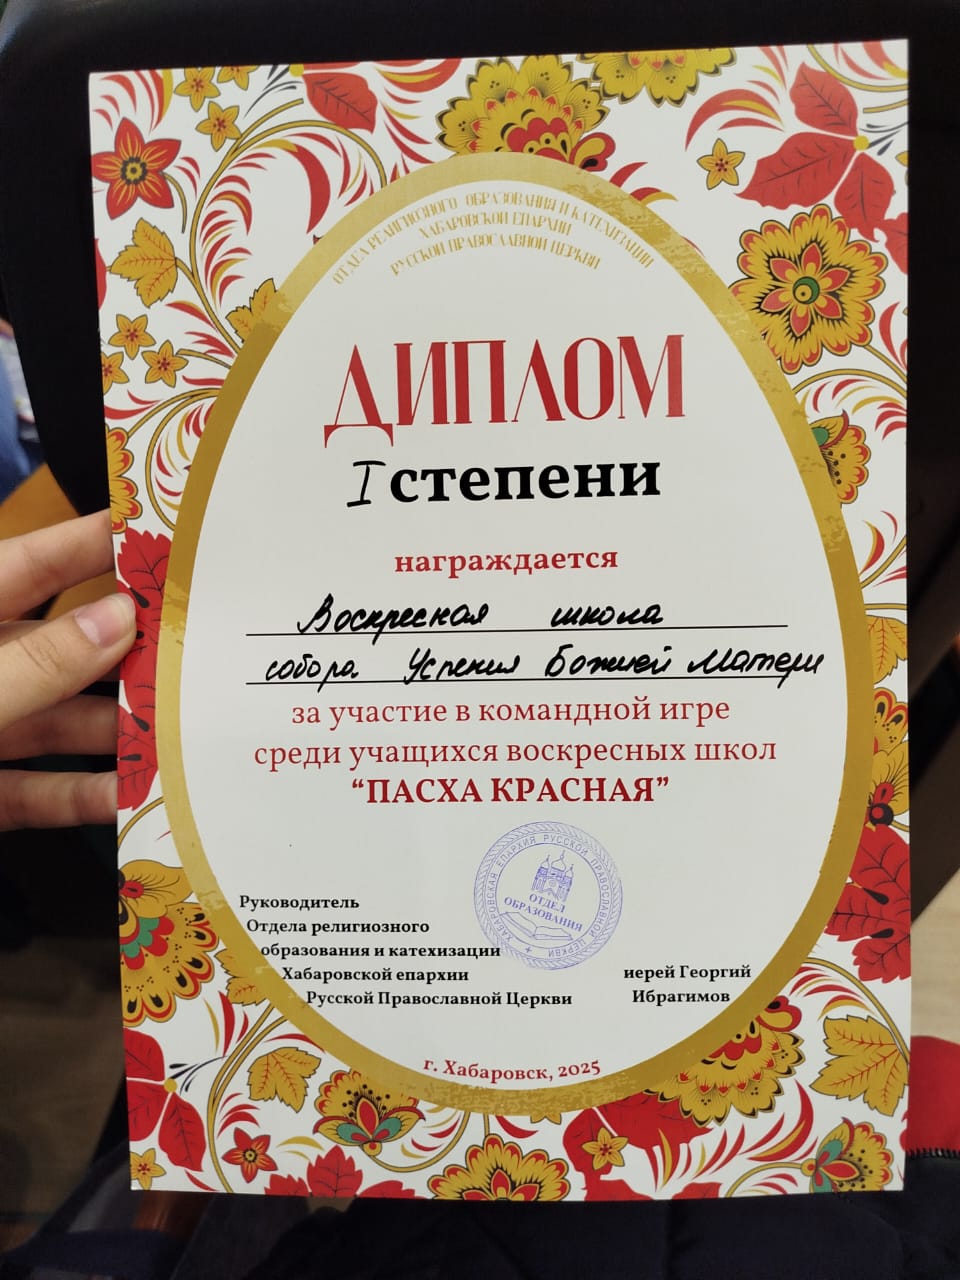 ОТДЕЛ РЕЛИГИОЗНОГО ОБРАЗОВАНИЯ И КАТЕХИЗАЦИИ
ХАБАРОВСКОЙ ЕПАРХИИ
РУССКОЙ ПРАВОСЛАВНОЙ ЦЕРКВИ
ДИПЛОМ
I степени
награждается
Воскресная школа
собора Успения Божией Матери
за участие в командной игре
среди учащихся воскресных школ
“ПАСХА КРАСНАЯ”
ХАБАРОВСКАЯ ЕПАРХИЯ РУССКОЙ ПРАВОСЛАВНОЙ ЦЕРКВИ
ОТДЕЛ
ОБРАЗОВАНИЯ
Руководитель
Отдела религиозного
образования и катехизации
Хабаровской епархии
Русской Православной Церкви
иерей Георгий
Ибрагимов
г. Хабаровск, 2025